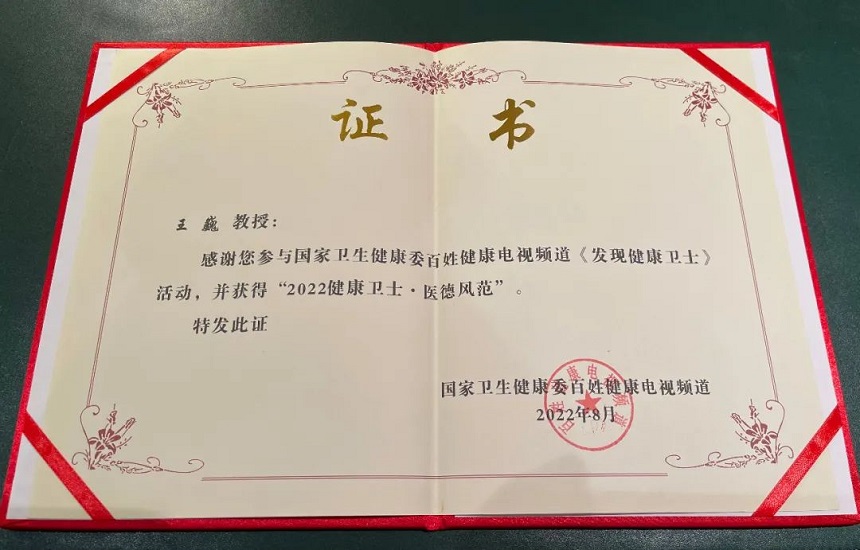 证书
王巍 教授：
感谢您参与国家卫生健康委百姓健康电视频道《发现健康卫士》
活动，并获得“2022健康卫士·医德风范”。
特发此证
国家卫生健康委百姓健康电视频道
2022年8月
百姓健康电视频道